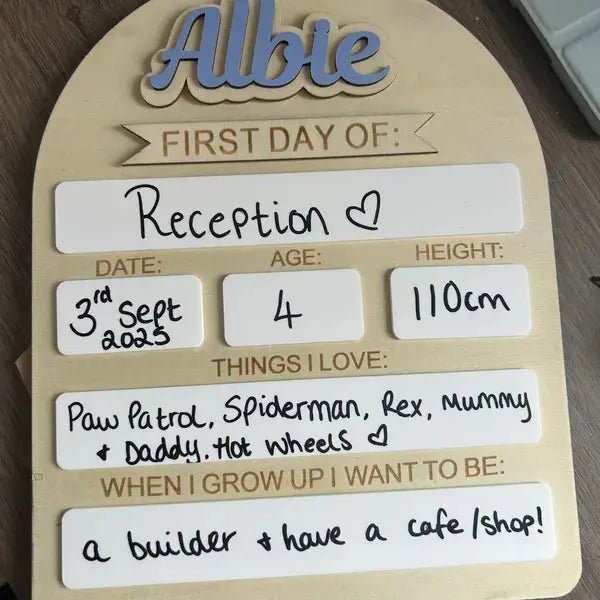 Albie
FIRST DAY OF:
Reception ♡
DATE:
AGE:
HEIGHT:
3rd Sept
2025
4
110cm
THINGS I LOVE:
Paw Patrol, Spiderman, Rex, Mummy
+ Daddy. Hot Wheels ♡
WHEN I GROW UP I WANT TO BE:
a builder + have a cafe/shop!